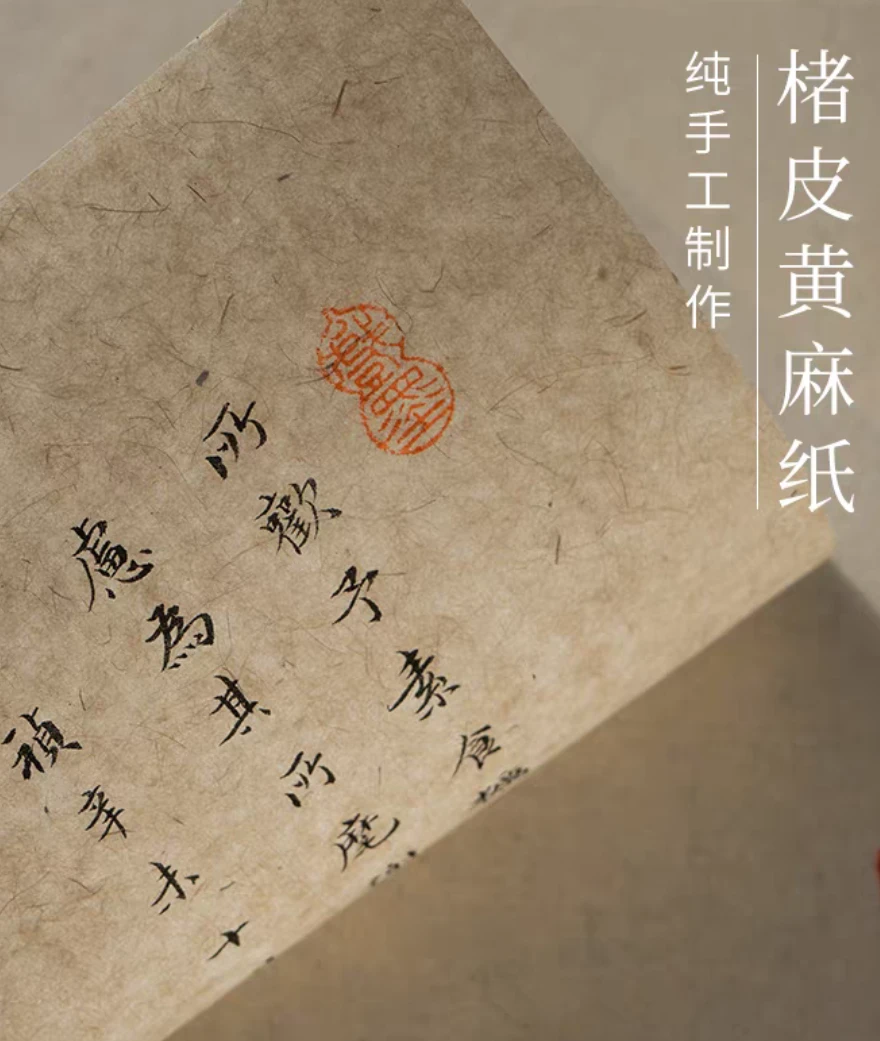 楮皮黄麻纸
纯手工制作
所歡素食
慮為其所
禎辛未十